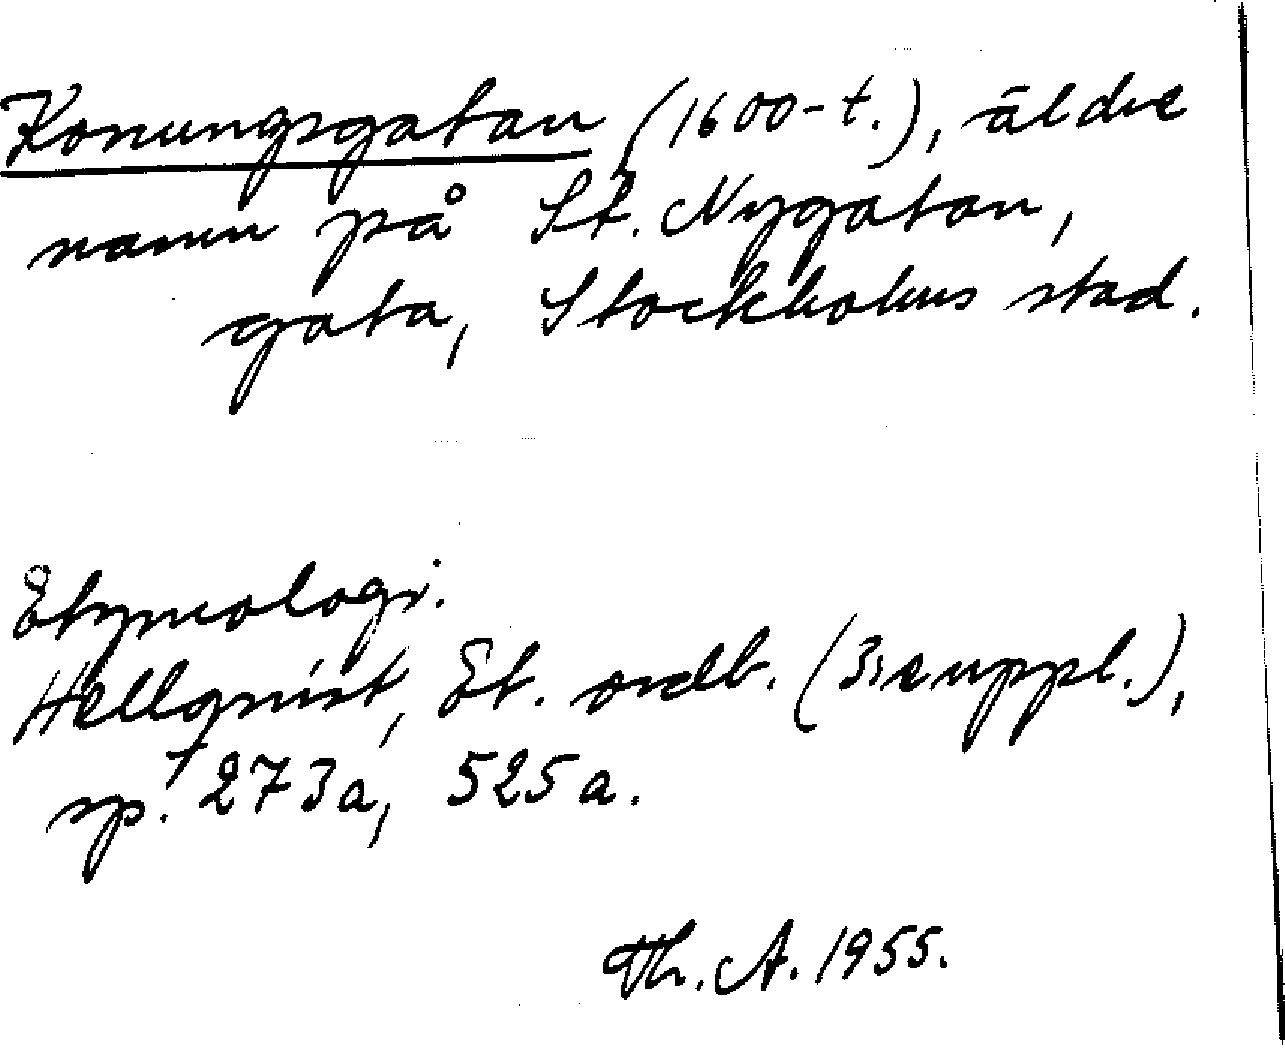 Konungsgatan (1600-t.), äldre
namn på St. Nygatan,
gata, Stockholms stad.
Etymologi.
Hellquist, Et. ordb. (3:e uppl.),
sp. 273a, 525a.
Th. A. 1955.